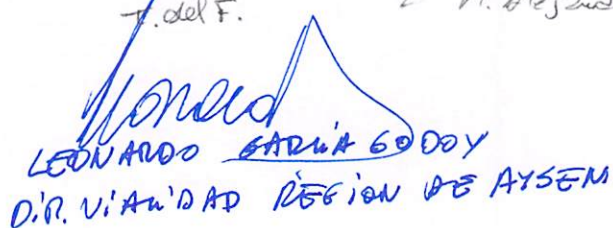 T. del F.
LEONARDO GARCIA GODOY
DIR. VIALIDAD REGION DE AYSEN